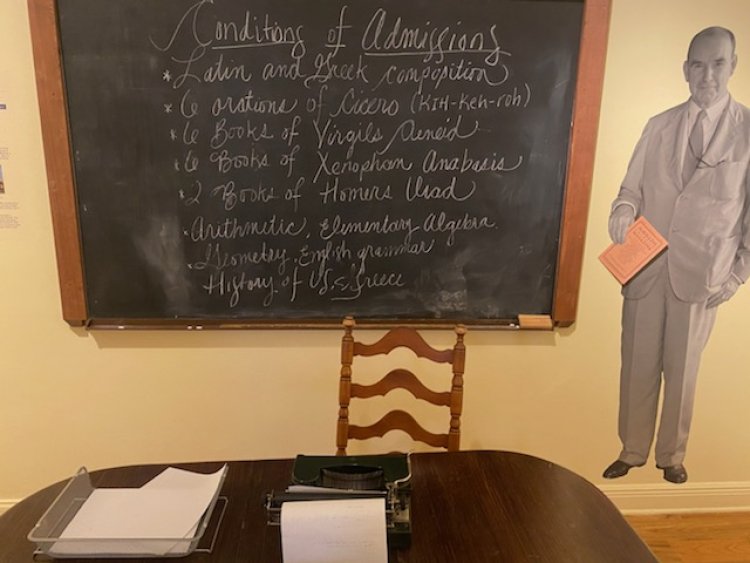 Conditions of Admissions
* Latin and Greek composition
* 6 orations of Cicero (KIH-Keh-roh)
* 6 Books of Virgils Aeneid
* 6 Books of Xenophan Anabasis
* 2 Books of Homers Iliad
* Arithmetic, Elementary Algebra.
* Geometry, English grammar
History of US & Greece